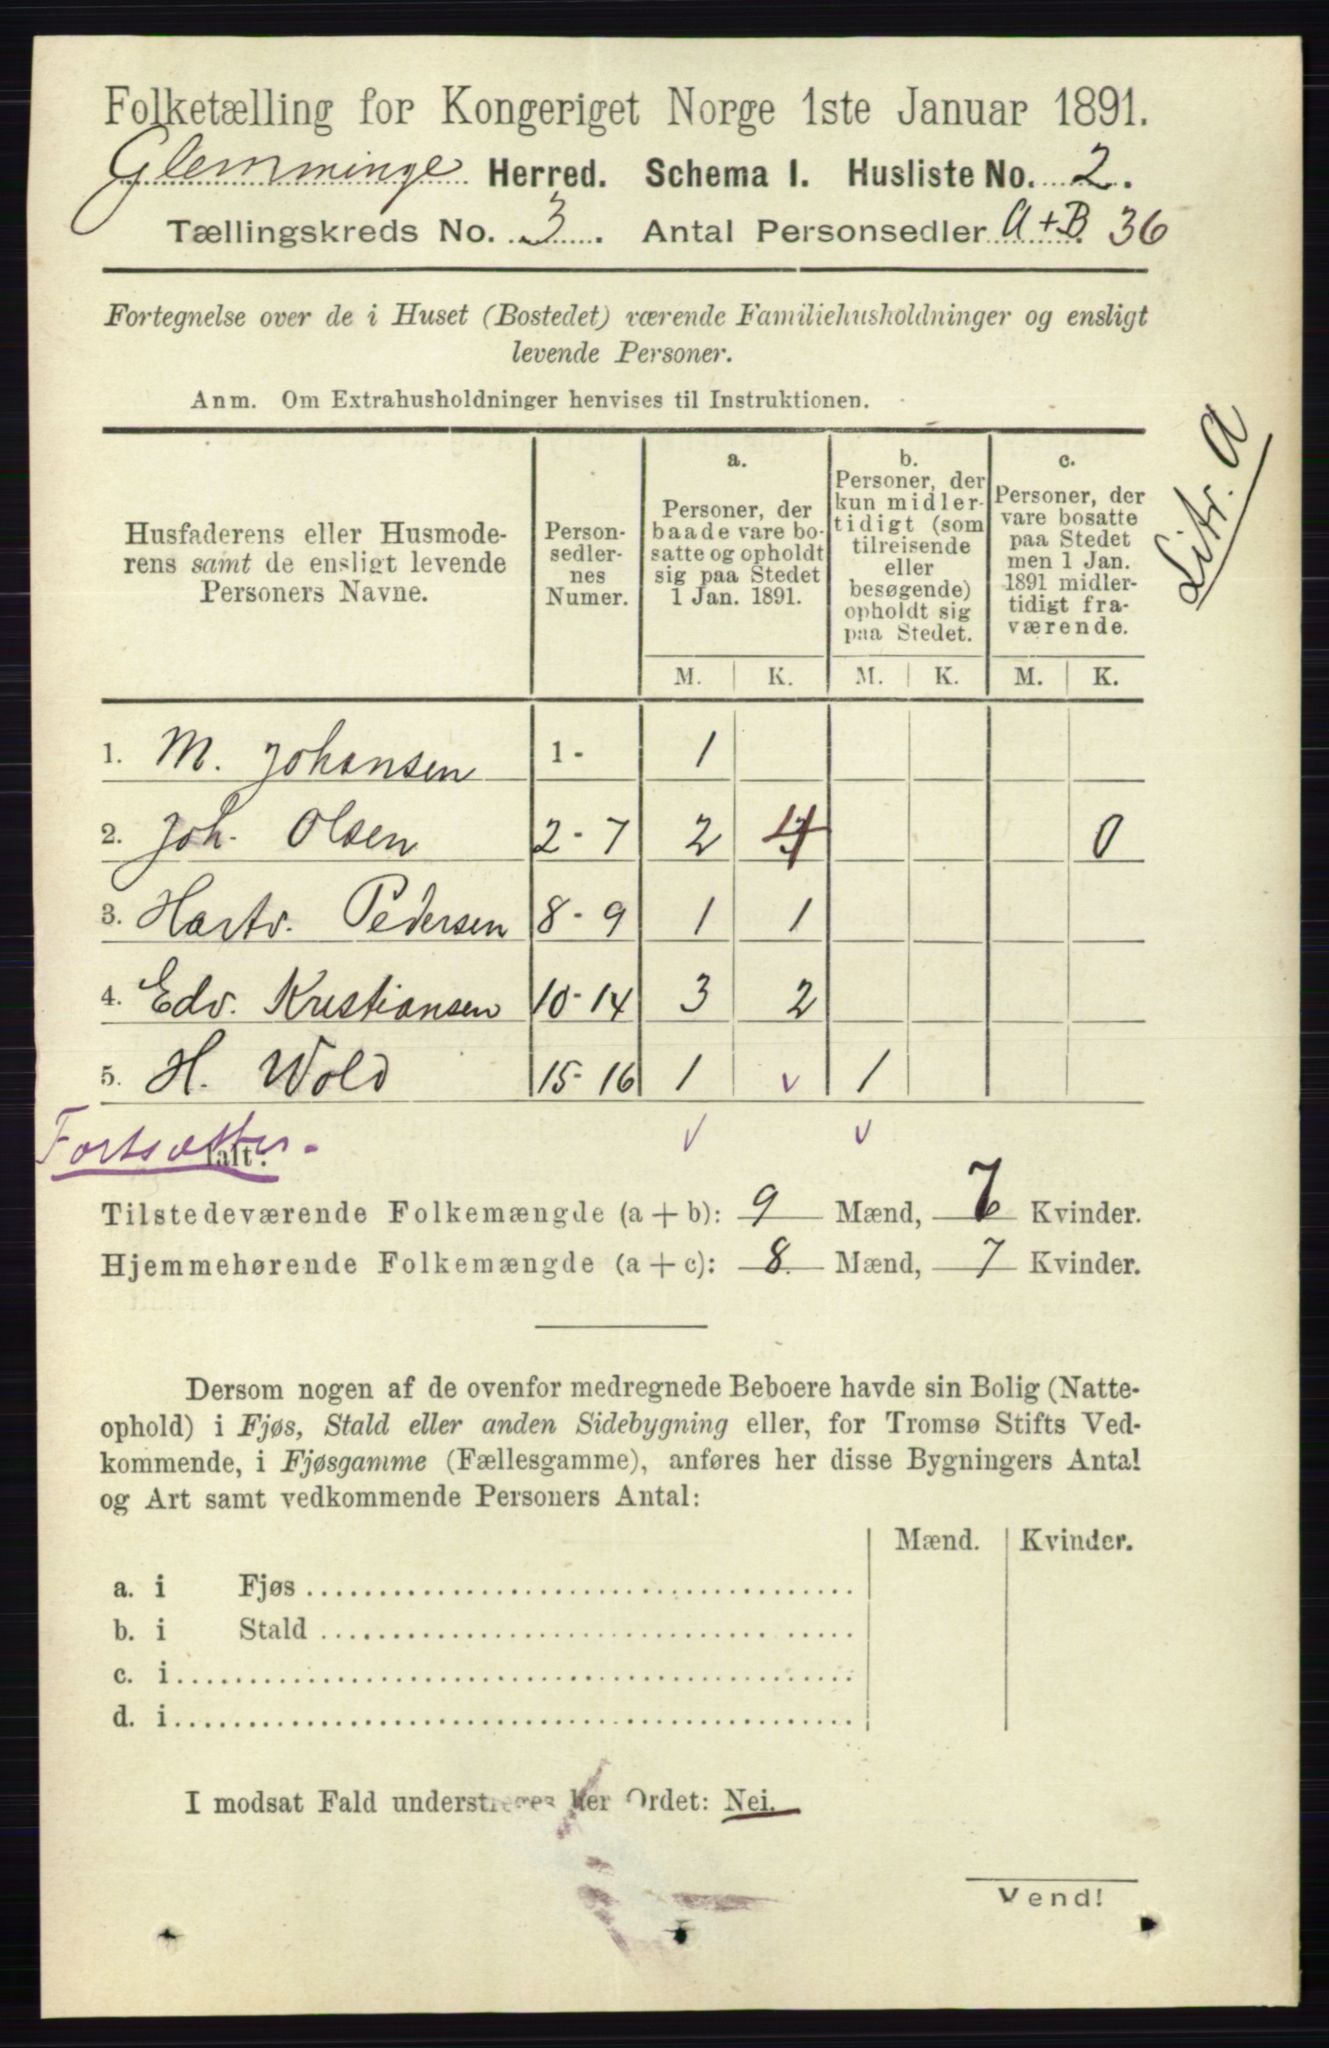 Folketælling for Kongeriget Norge 1ste Januar 1891.
Glemminge Herred. Schema I. Husliste No. 2.
Tællingskreds No. 3. Antal Personsedler A+B 36
Litr. A
Fortegnelse over de i Huset (Bostedet) værende Familiehusholdninger og ensligt
levende Personer.
Anm. Om Extrahusholdninger henvises til Instruktionen.
Husfaderens eller Husmode-
rens samt de ensligt levende
Personers Navne.
Person-
sedler-
nes
Numer.
a.
Personer, der
baade vare bo-
satte og opholdt
sig paa Stedet
1 Jan. 1891.
b.
Personer, der
kun midler-
tidigt (som
tilreisende
eller
besøgende)
opholdt sig
paa Stedet.
c.
Personer, der
vare bosatte
paa Stedet
men 1 Jan.
1891 midler-
tidigt fra-
værende.
M. K. M. K. M. K.
1. M. Johansen 1- 1
2. Joh. Olsen 2-7 2 4 0
3. Hartv. Pedersen 8-9 1 1
4. Edv. Kristiansen 10-14 3 2
5. H. Wold 15-16 1 v 1
Fortsætter.
Ialt:
v v
Tilstedeværende Folkemængde (a + b): 9 Mænd, 7 Kvinder.
Hjemmehørende Folkemængde (a + c): 8 Mænd, 7 Kvinder.
Dersom nogen af de ovenfor medregnede Beboere havde sin Bolig (Natte-
ophold) i Fjøs, Stald eller anden Sidebygning eller, for Tromsø Stifts Ved-
kommende, i Fjøsgamme (Fællesgamme), anføres her disse Bygningers Antal
og Art samt vedkommende Personers Antal:
Mænd. Kvinder.
a. i Fjøs
b. i Stald
c. i
d. i
I modsat Fald understreges her Ordet: Nei.
Vend!